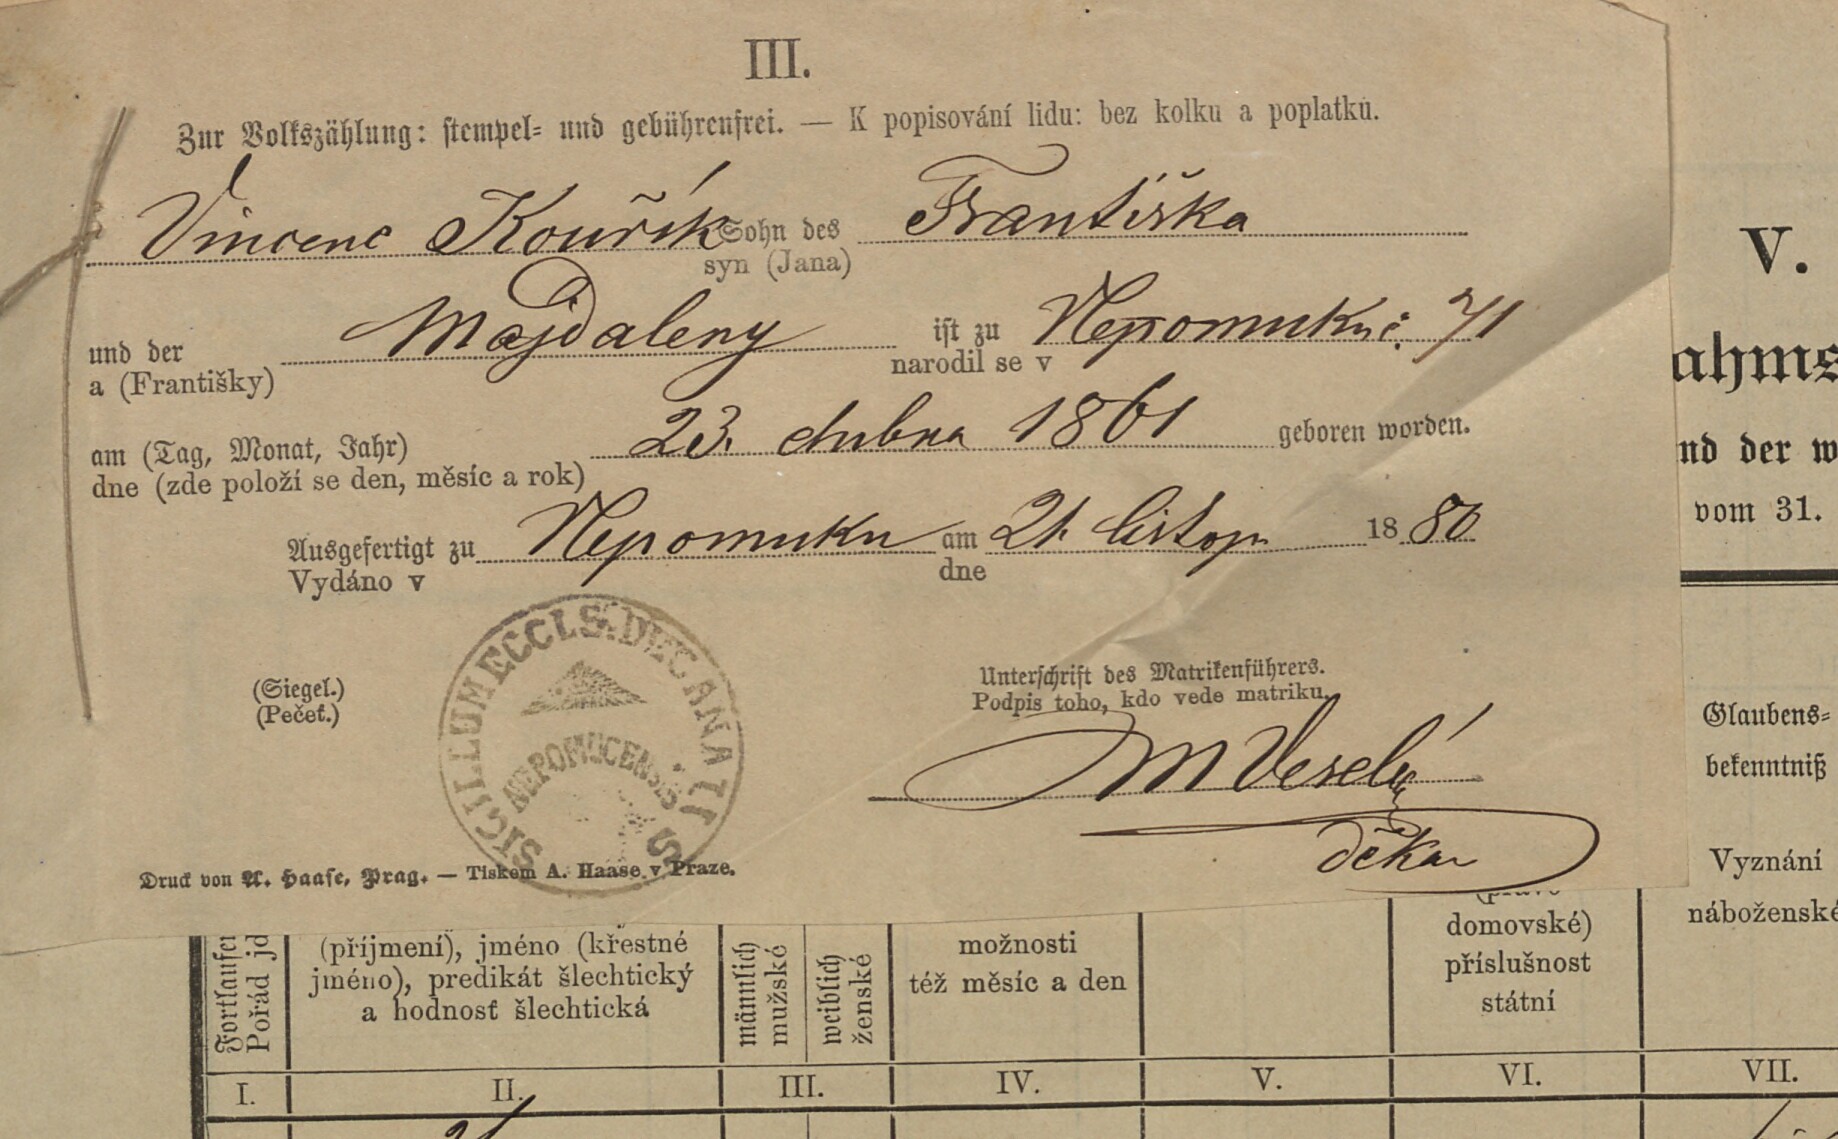 III.
Zur Volkszählung: stempel- und gebührenfrei. — K popisování lidu: bez kolku a poplatku.
Vincenc Kouřík Sohn des Františka
syn (Jana)
und der Majdaleny ist zu Nepomuku č. 71
a (Františky) narodil se v
am (Tag, Monat, Jahr) 23. dubna 1861 geboren worden.
dne (zde položí se den, měsíc a rok)
Ausgefertigt zu Nepomuku am 21. listop. 1880
Vydáno v dne
(Siegel.)
(Pečeť.)
SIGILLUM ECCLS. DECANATUS
NEPOMUCENSIS
Unterschrift des Matrikenführers.
Podpis toho, kdo vede matriku.
M Veselý
děkan
Druck von A. Haase, Prag. — Tiskem A. Haase v Praze.
V.
ahms
nd der w
vom 31.
Glaubens-
bekenntniß
Vyznání
náboženské
(příjmení), jméno (křestné
jméno), predikát šlechtický
a hodnosť šlechtická
männlich
mužské
weiblich
ženské
možnosti
též měsíc a den
domovské)
příslušnost
státní
Fortlaufen
Pořád jd
I. II. III. IV. V. VI. VII.